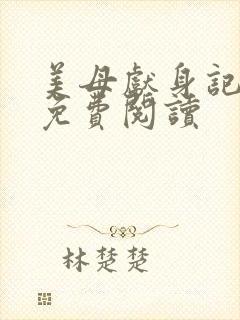 美母獻身記
免費閱讀
林楚楚